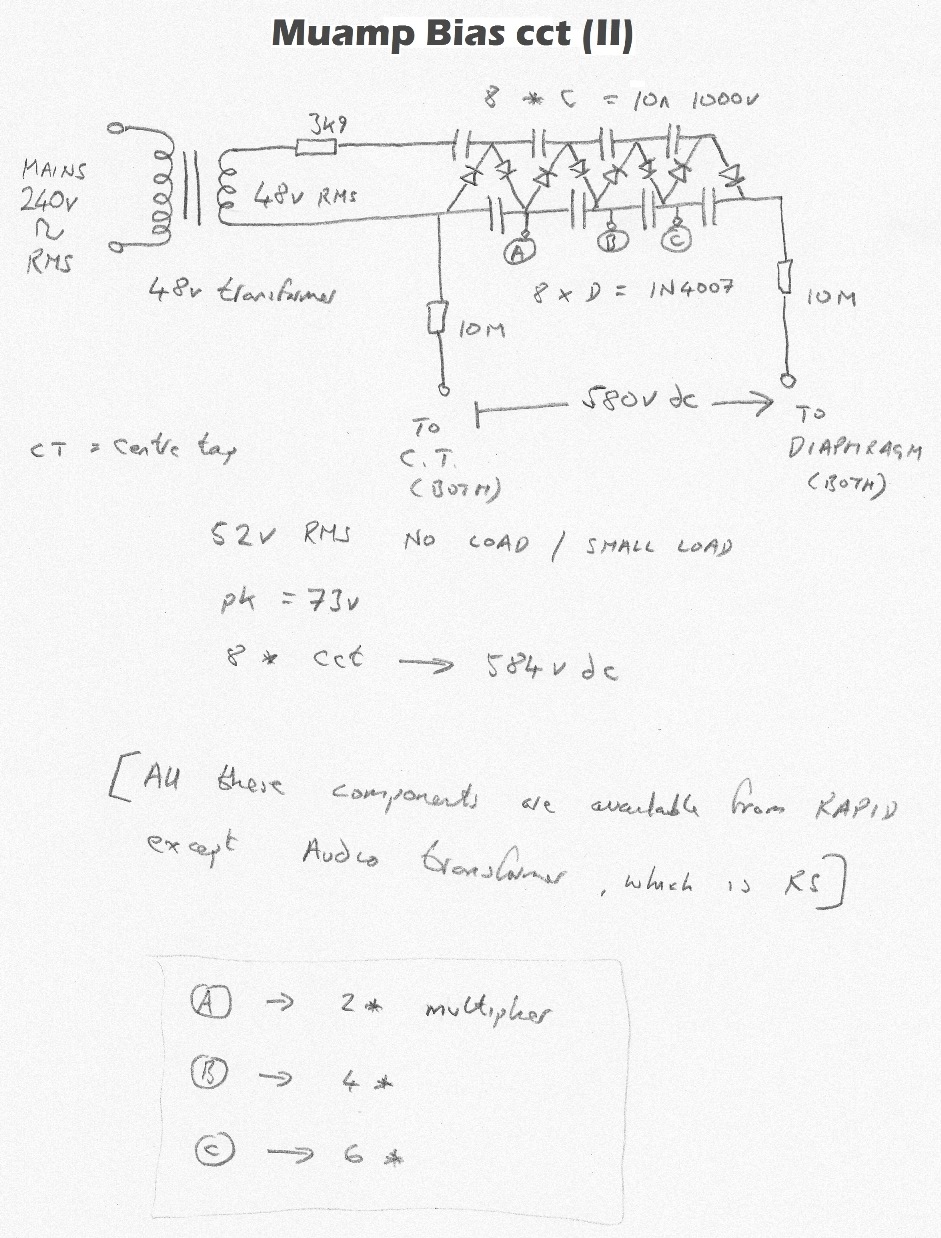 Muamp Bias cct (II)
8 * C = 10n 1000v
3k9
MAINS
240v
RMS
48v RMS
A
B
C
48v transformer
8 x D = 1N4007
10M
10M
580v dc
TO
C.T.
(BOTH)
TO
DIAPHRAGM
(BOTH)
CT = centre tap
52v RMS NO LOAD / SMALL LOAD
pk = 73v
8 * cct → 584v dc
[All these components are available from RAPID
except Audio transformer, which is RS]
A → 2* multiplier
B → 4 *
C → 6 *